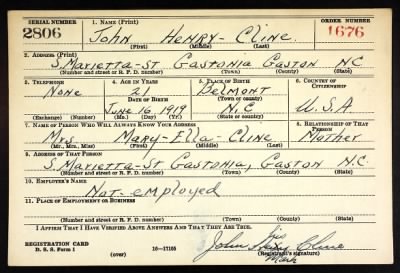 SERIAL NUMBER 1. NAME (Print) ORDER NUMBER
2806 John Henry - Cline 1676
(First) (Middle) (Last)
2. ADDRESS (Print)
S. Marietta - St Gastonia Gaston N C
(Number and street or R. F. D. number) (Town) (County) (State)
3. TELEPHONE 4. AGE IN YEARS 5. PLACE OF BIRTH 6. COUNTRY OF CITIZENSHIP
None 21 Belmont
DATE OF BIRTH (Town or county)
June 16 1919 N.C U.S.A
(Exchange) (Number) (Mo.) (Day) (Yr.) (State or country)
7. NAME OF PERSON WHO WILL ALWAYS KNOW YOUR ADDRESS 8. RELATIONSHIP OF THAT PERSON
Mrs Mary - Ella - Cline Mother
(Mr., Mrs., Miss) (First) (Middle) (Last)
9. ADDRESS OF THAT PERSON
S. Marietta - St Gastonia, Gaston N.C.
(Number and street or R. F. D. number) (Town) (County) (State)
10. EMPLOYER'S NAME
Not - employed
11. PLACE OF EMPLOYMENT OR BUSINESS
(Number and street or R. F. D. number) (Town) (County) (State)
I AFFIRM THAT I HAVE VERIFIED ABOVE ANSWERS AND THAT THEY ARE TRUE.
his
REGISTRATION CARD John Henry Cline
D. S. S. Form 1 (over) 16-17105 (Registrant's signature)
mark